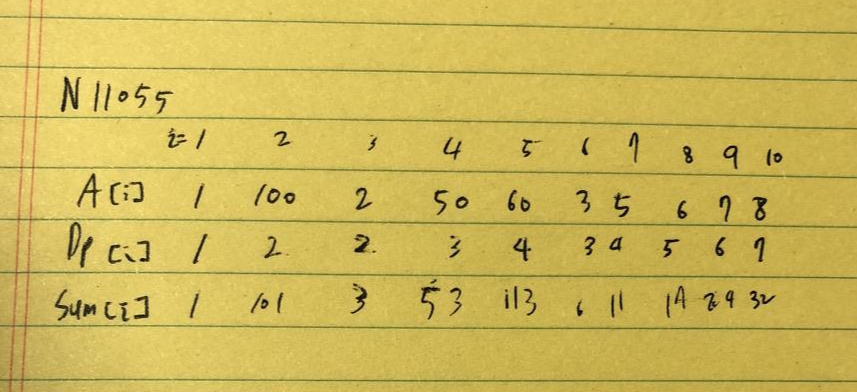 N 11055
i= 1 2 3 4 5 6 7 8 9 10
A[i] 1 100 2 50 60 3 5 6 7 8
Dp[i] 1 2 2 3 4 3 4 5 6 7
Sum[i] 1 101 3 53 113 6 11 14 29 32